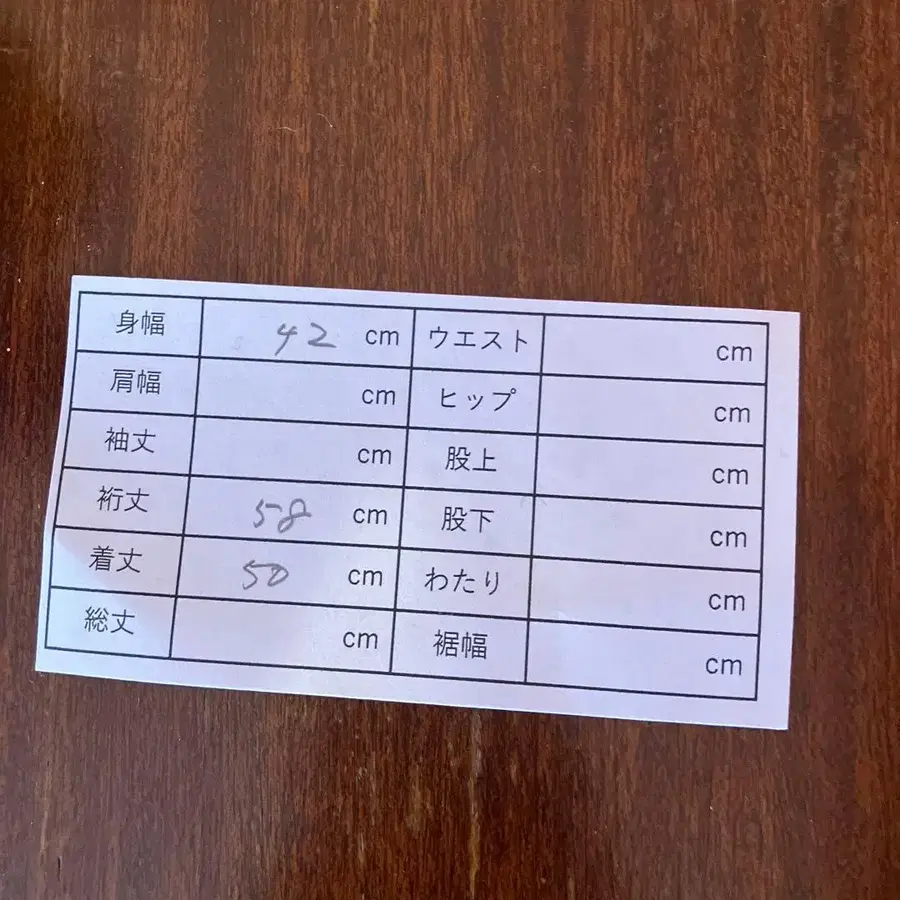 身幅 42 cm ウエスト cm
肩幅 cm ヒップ cm
袖丈 cm 股上 cm
裄丈 58 cm 股下 cm
着丈 50 cm わたり cm
総丈 cm 裾幅 cm